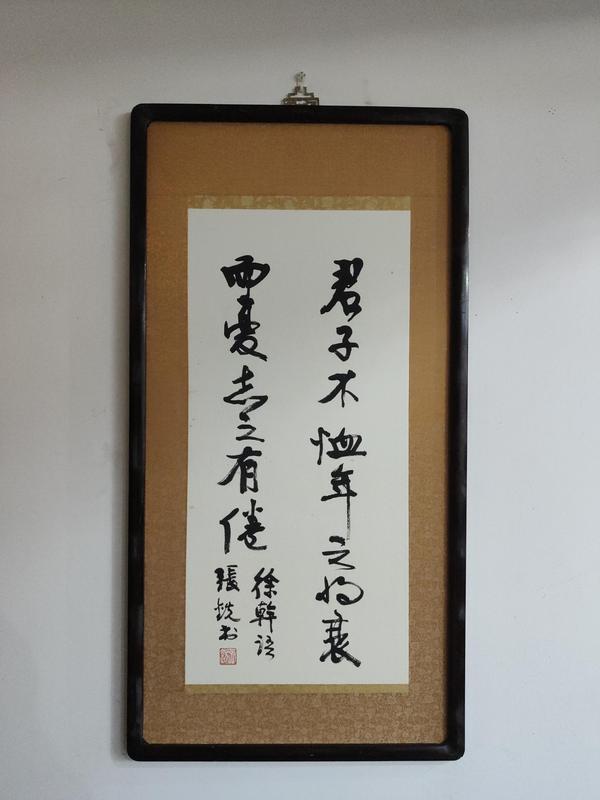 君子不恤年之将衰
而憂志之有倦
徐幹語
張銳书